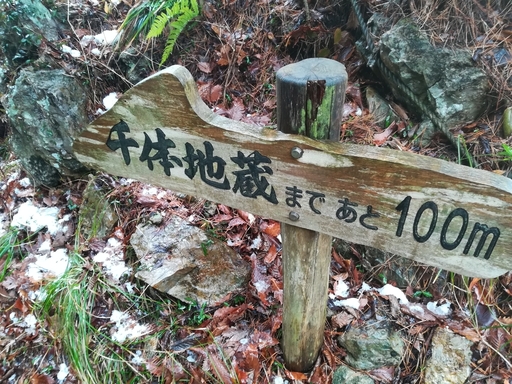 千体地蔵まであと100m